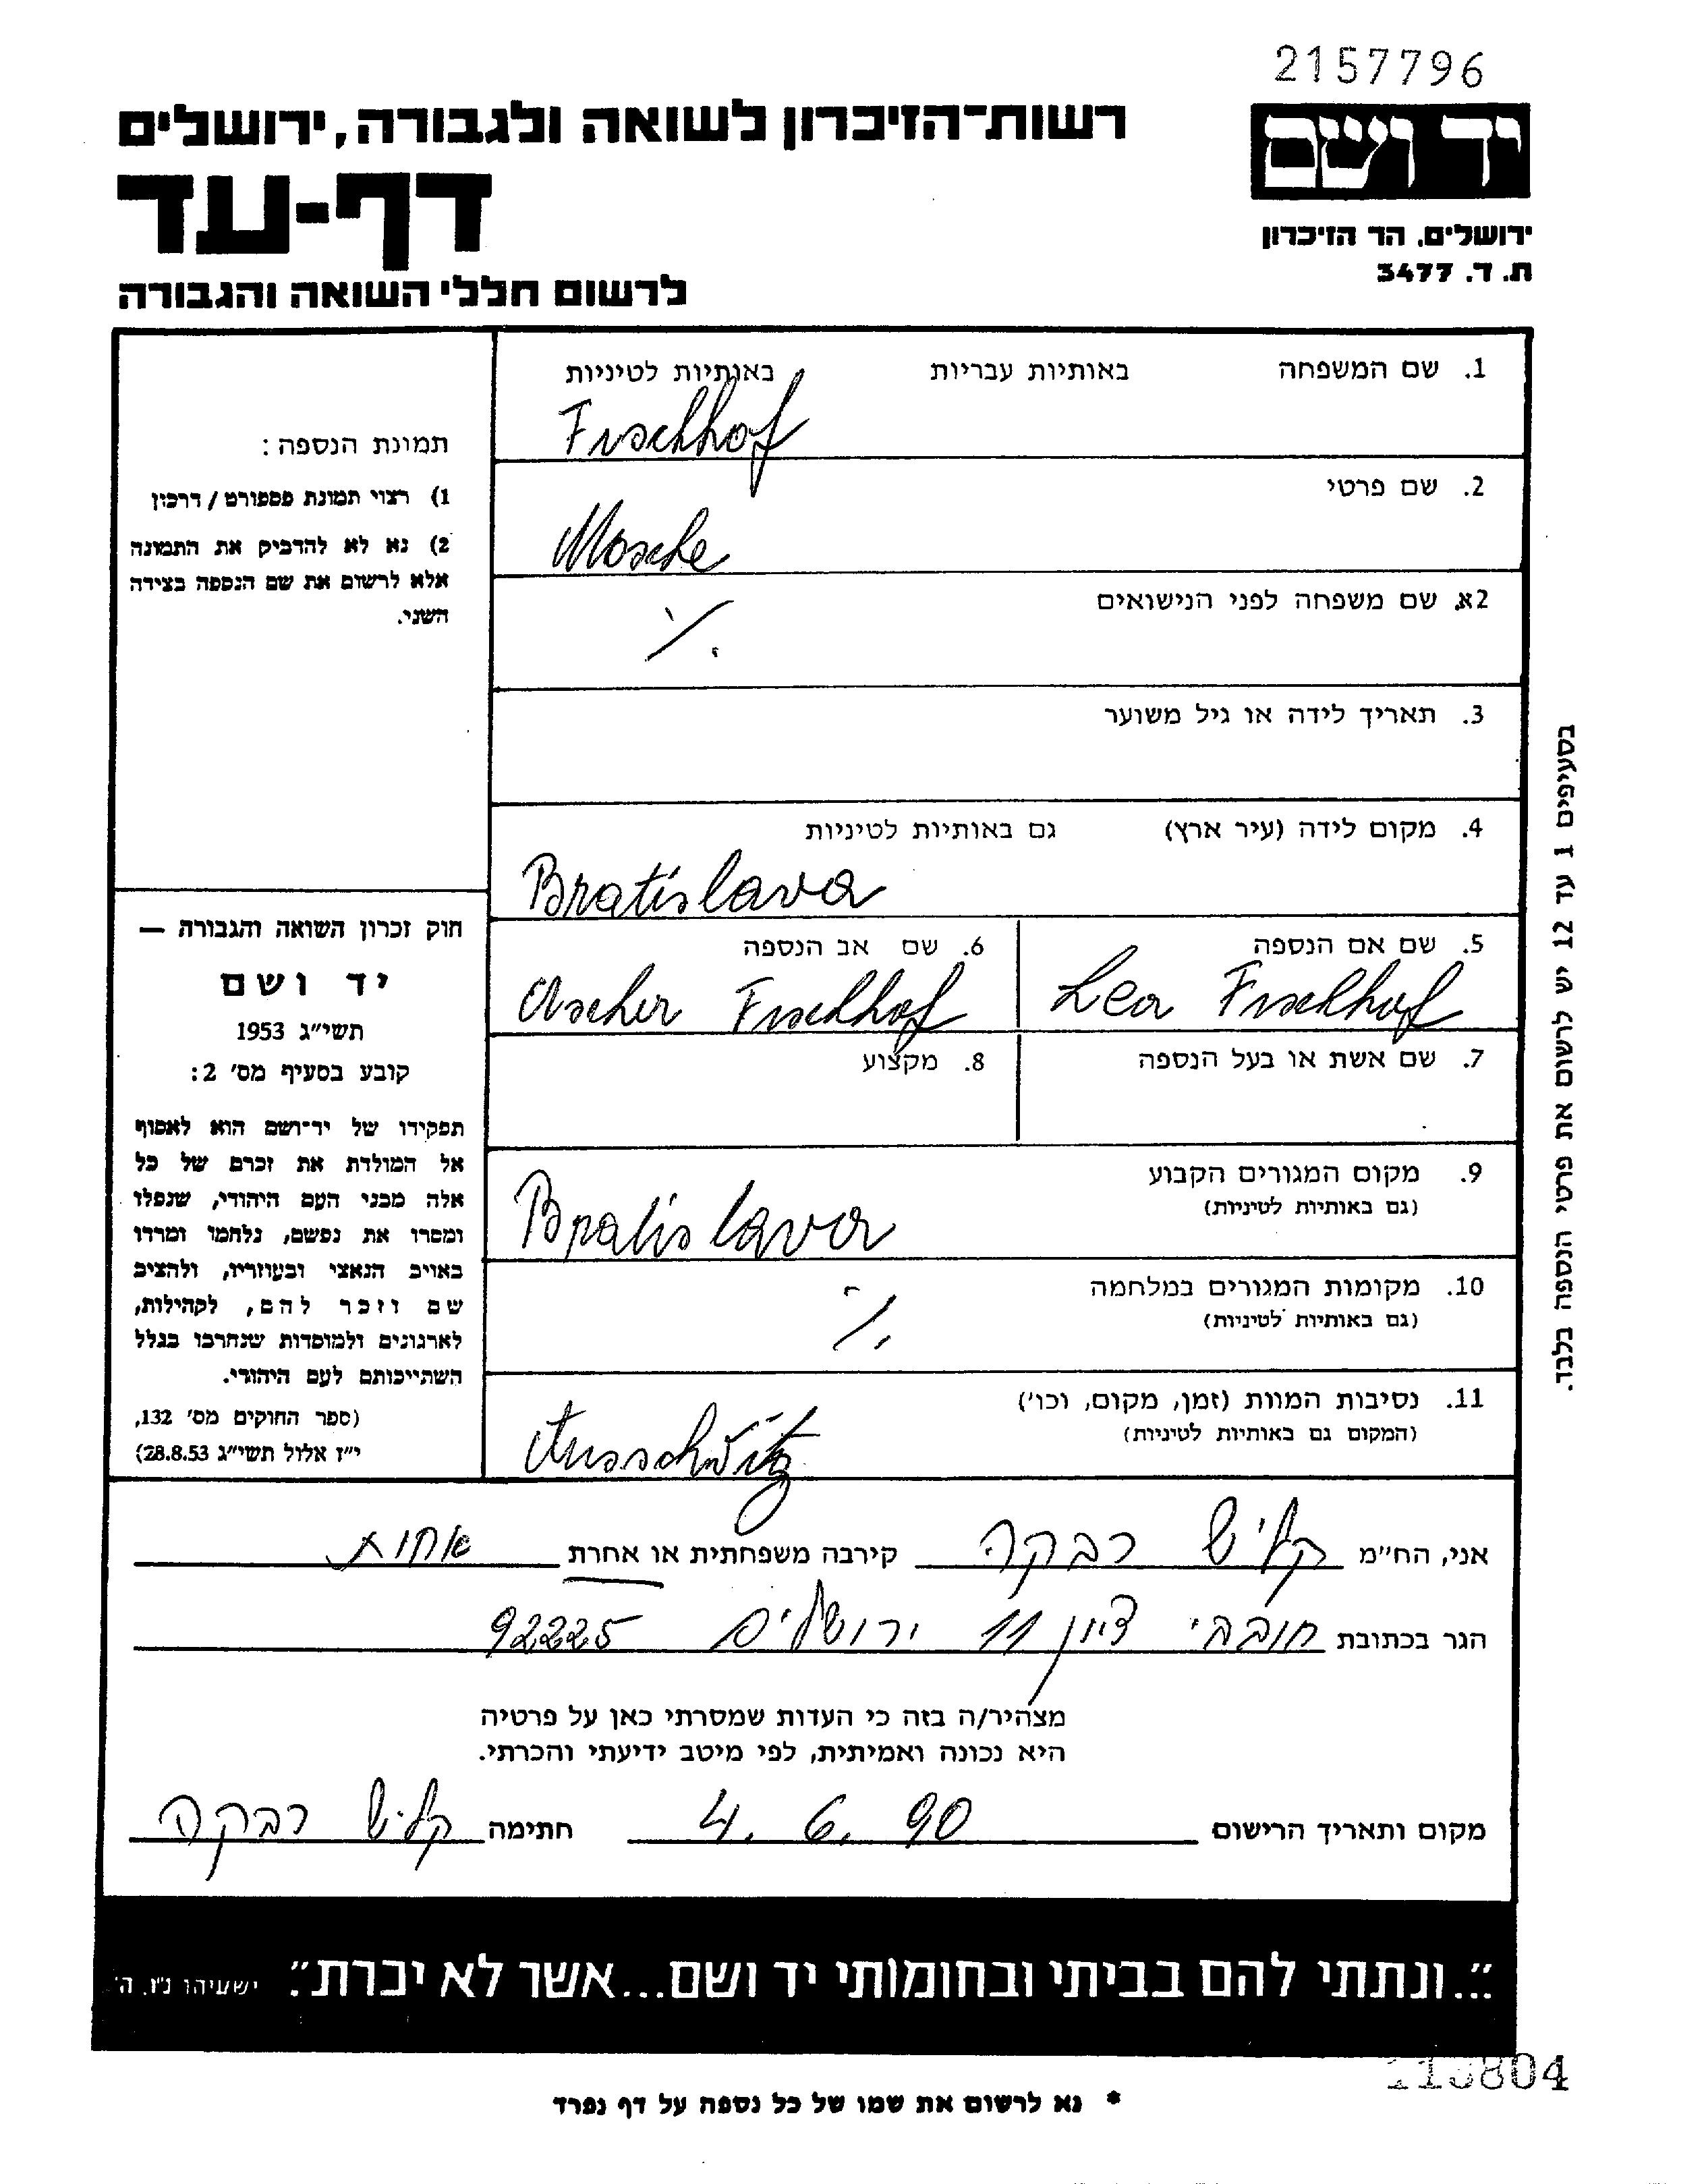 2157796
יד ושם
רשות־הזיכרון לשואה ולגבורה, ירושלים
דף-עד
ירושלים, הר הזיכרון
ת. ד. 3477
לרשום חללי השואה והגבורה
1. שם המשפחה באותיות עבריות באותיות לטיניות
Fischhof
2. שם פרטי
Mosche
2א. שם משפחה לפני הנישואים
./.
3. תאריך לידה או גיל משוער
4. מקום לידה (עיר ארץ) גם באותיות לטיניות
Bratislava
5. שם אם הנספה 6. שם אב הנספה
Lea Fischhof Ascher Fischhof
7. שם אשת או בעל הנספה 8. מקצוע
9. מקום המגורים הקבוע
(גם באותיות לטיניות)
Bratislava
10. מקומות המגורים במלחמה
(גם באותיות לטיניות)
./.
11. נסיבות המוות (זמן, מקום, וכו')
(המקום גם באותיות לטיניות)
Ausschwitz
תמונת הנספה:
1) רצוי תמונת פספורט / דרכון
2) נא לא להדביק את התמונה
אלא לרשום את שם הנספה בצידה
השני.
חוק זכרון השואה והגבורה —
יד ושם
תשי״ג 1953
קובע בסעיף מס׳ 2:
תפקידו של יד־ושם הוא לאסוף
אל המולדת את זכרם של כל
אלה מבני העם היהודי, שנפלו
ומסרו את נפשם, נלחמו ומרדו
באויב הנאצי ובעוזריו, ולהציב
שם וזכר להם, לקהילות,
לארגונים ולמוסדות שנחרבו בגלל
השתייכותם לעם היהודי.
(ספר החוקים מס׳ 132,
י״ז אלול תשי״ג 28.8.53)
בסעיפים 1 עד 12 יש לרשום את פרטי הנספה בלבד.
אני, הח״מ קליש רבקה קירבה משפחתית או אחרת אחות
הגר בכתובת חובבי ציון 11 ירושלים 92225
מצהיר/ה בזה כי העדות שמסרתי כאן על פרטיה
היא נכונה ואמיתית, לפי מיטב ידיעתי והכרתי.
מקום ותאריך הרישום 4. 6. 90 חתימה קליש רבקה
"...ונתתי להם בביתי ובחומותי יד ושם...אשר לא יכרת". ישעיהו נ"ו, ה'
* נא לרשום את שמו של כל נספה על דף נפרד